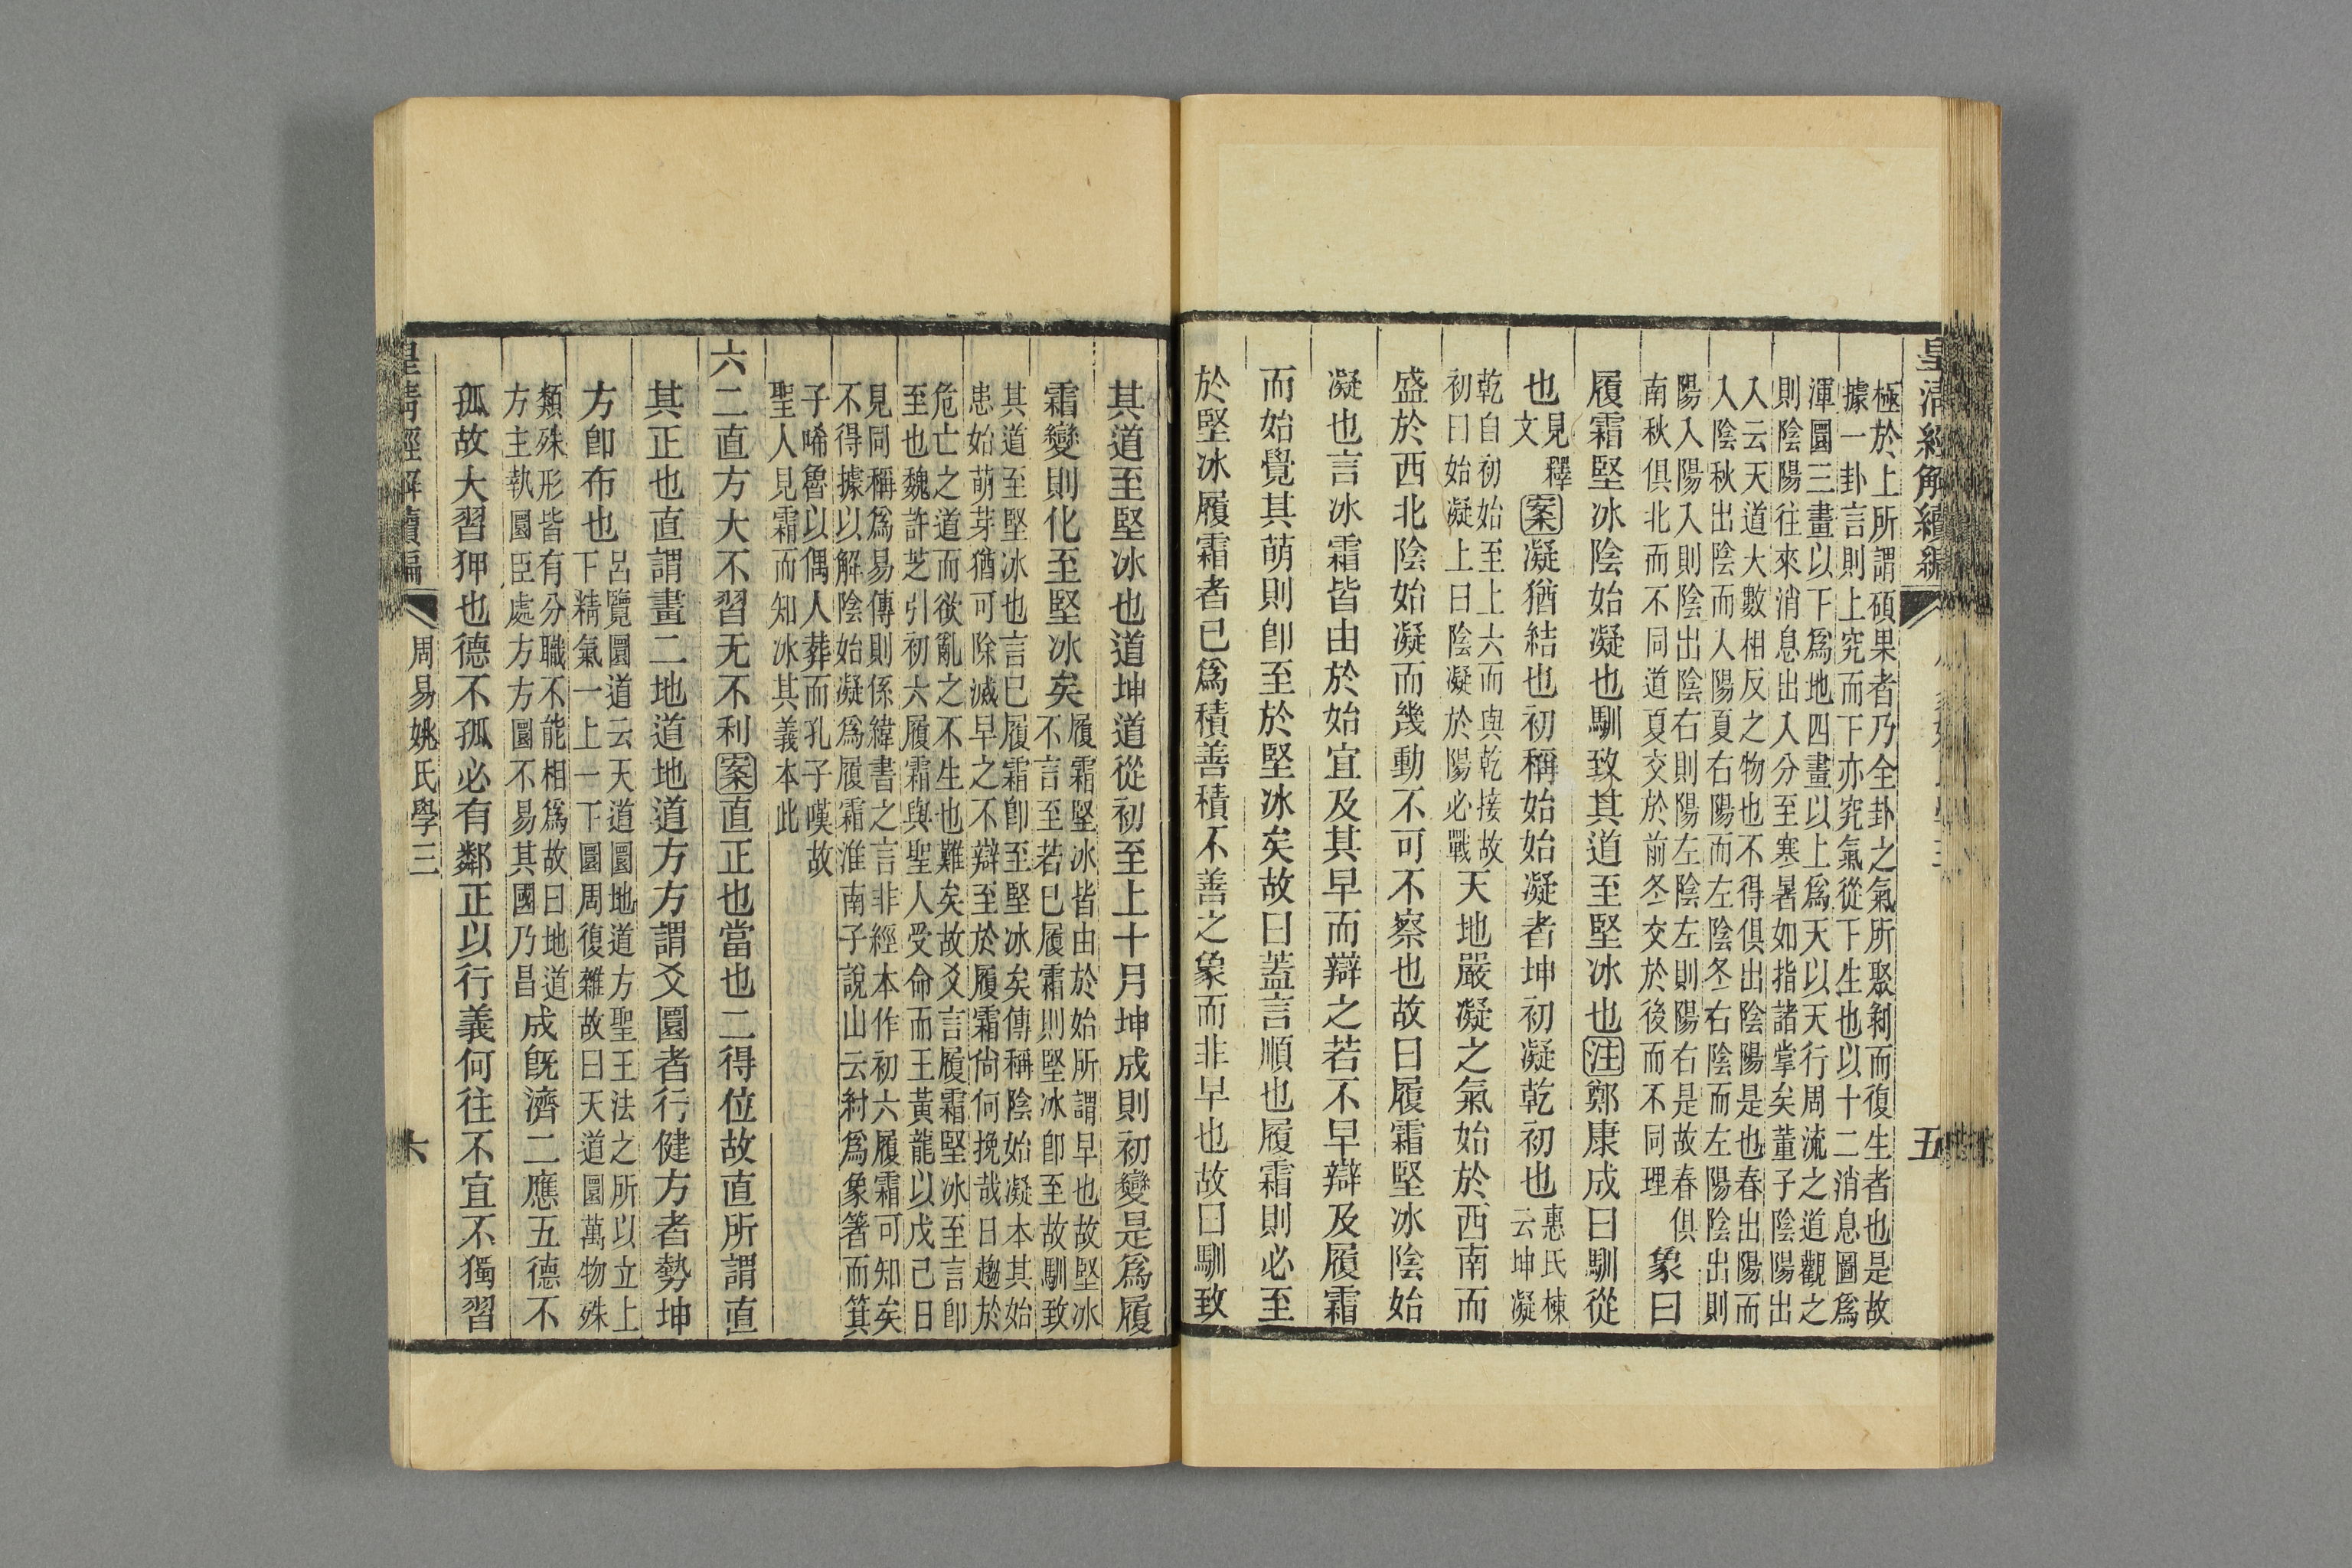 皇清經解續編 五
極於上所謂碩果者乃全卦之氣所聚剝而復生者也是故
據一卦言則上究而下亦究氣從下生也以十二消息圖爲
渾圜三畫以下爲地四畫以上爲天以天行周流之道觀之
則陰陽往來消息出入分至寒暑如指諸掌矣董子陰陽出
入云天道大數相反之物也不得俱出陰陽是也春出陽而
入陰秋出陰而入陽夏右陽而左陰冬右陰而左陽陰出則
陽入陽入則陰出陰右則陽左陰左則陽右是故春俱
南秋俱北而不同道夏交於前冬交於後而不同理
象曰
履霜堅冰陰始凝也馴致其道至堅冰也注鄭康成曰馴從
也見釋文案凝猶結也初稱始始凝者坤初凝乾初也惠氏棟云坤凝
乾自初始至上六而與乾接故
初曰始凝上曰陰凝於陽必戰
天地嚴凝之氣始於西南而
盛於西北陰始凝而幾動不可不察也故曰履霜堅冰陰始
凝也言冰霜皆由於始宜及其早而辯之若不早辯及履霜
而始覺其萌則卽至於堅冰矣故曰蓋言順也履霜則必至
於堅冰履霜者已爲積善積不善之象而非早也故曰馴致
其道至堅冰也道坤道從初至上十月坤成則初變是爲履
霜變則化至堅冰矣
履霜堅冰皆由於始所謂早也故堅冰
不言至若已履霜則堅冰卽至故馴致
其道至堅冰也言已履霜卽至堅冰矣傳稱陰始凝本其始
患始萌芽猶可除滅早之不辯至於履霜尙何挽哉日趨於
危亡之道而欲亂之不生也難矣故爻言履霜堅冰至言卽
至也魏許芝引初六履霜與聖人受命而王黃龍以戊己日
見同稱爲易傳則係緯書之言非經本作初六履霜可知矣
不得據以解陰始凝爲履霜淮南子說山云紂爲象箸而箕
子唏魯以偶人葬而孔子嘆故
聖人見霜而知冰其義本此
六二直方大不習无不利案直正也當也二得位故直所謂直
其正也直謂畫二地道地道方方謂爻圜者行健方者勢坤
方卽布也
呂覽圜道云天道圜地道方聖王法之所以立上
下精氣一上一下圜周復雜故曰天道圜萬物殊
類殊形皆有分職不能相爲故曰地道
方主執圜臣處方方圜不易其國乃昌
成旣濟二應五德不
孤故大習狎也德不孤必有鄰正以行義何往不宜不獨習
皇清經解續編 周易姚氏學三 六